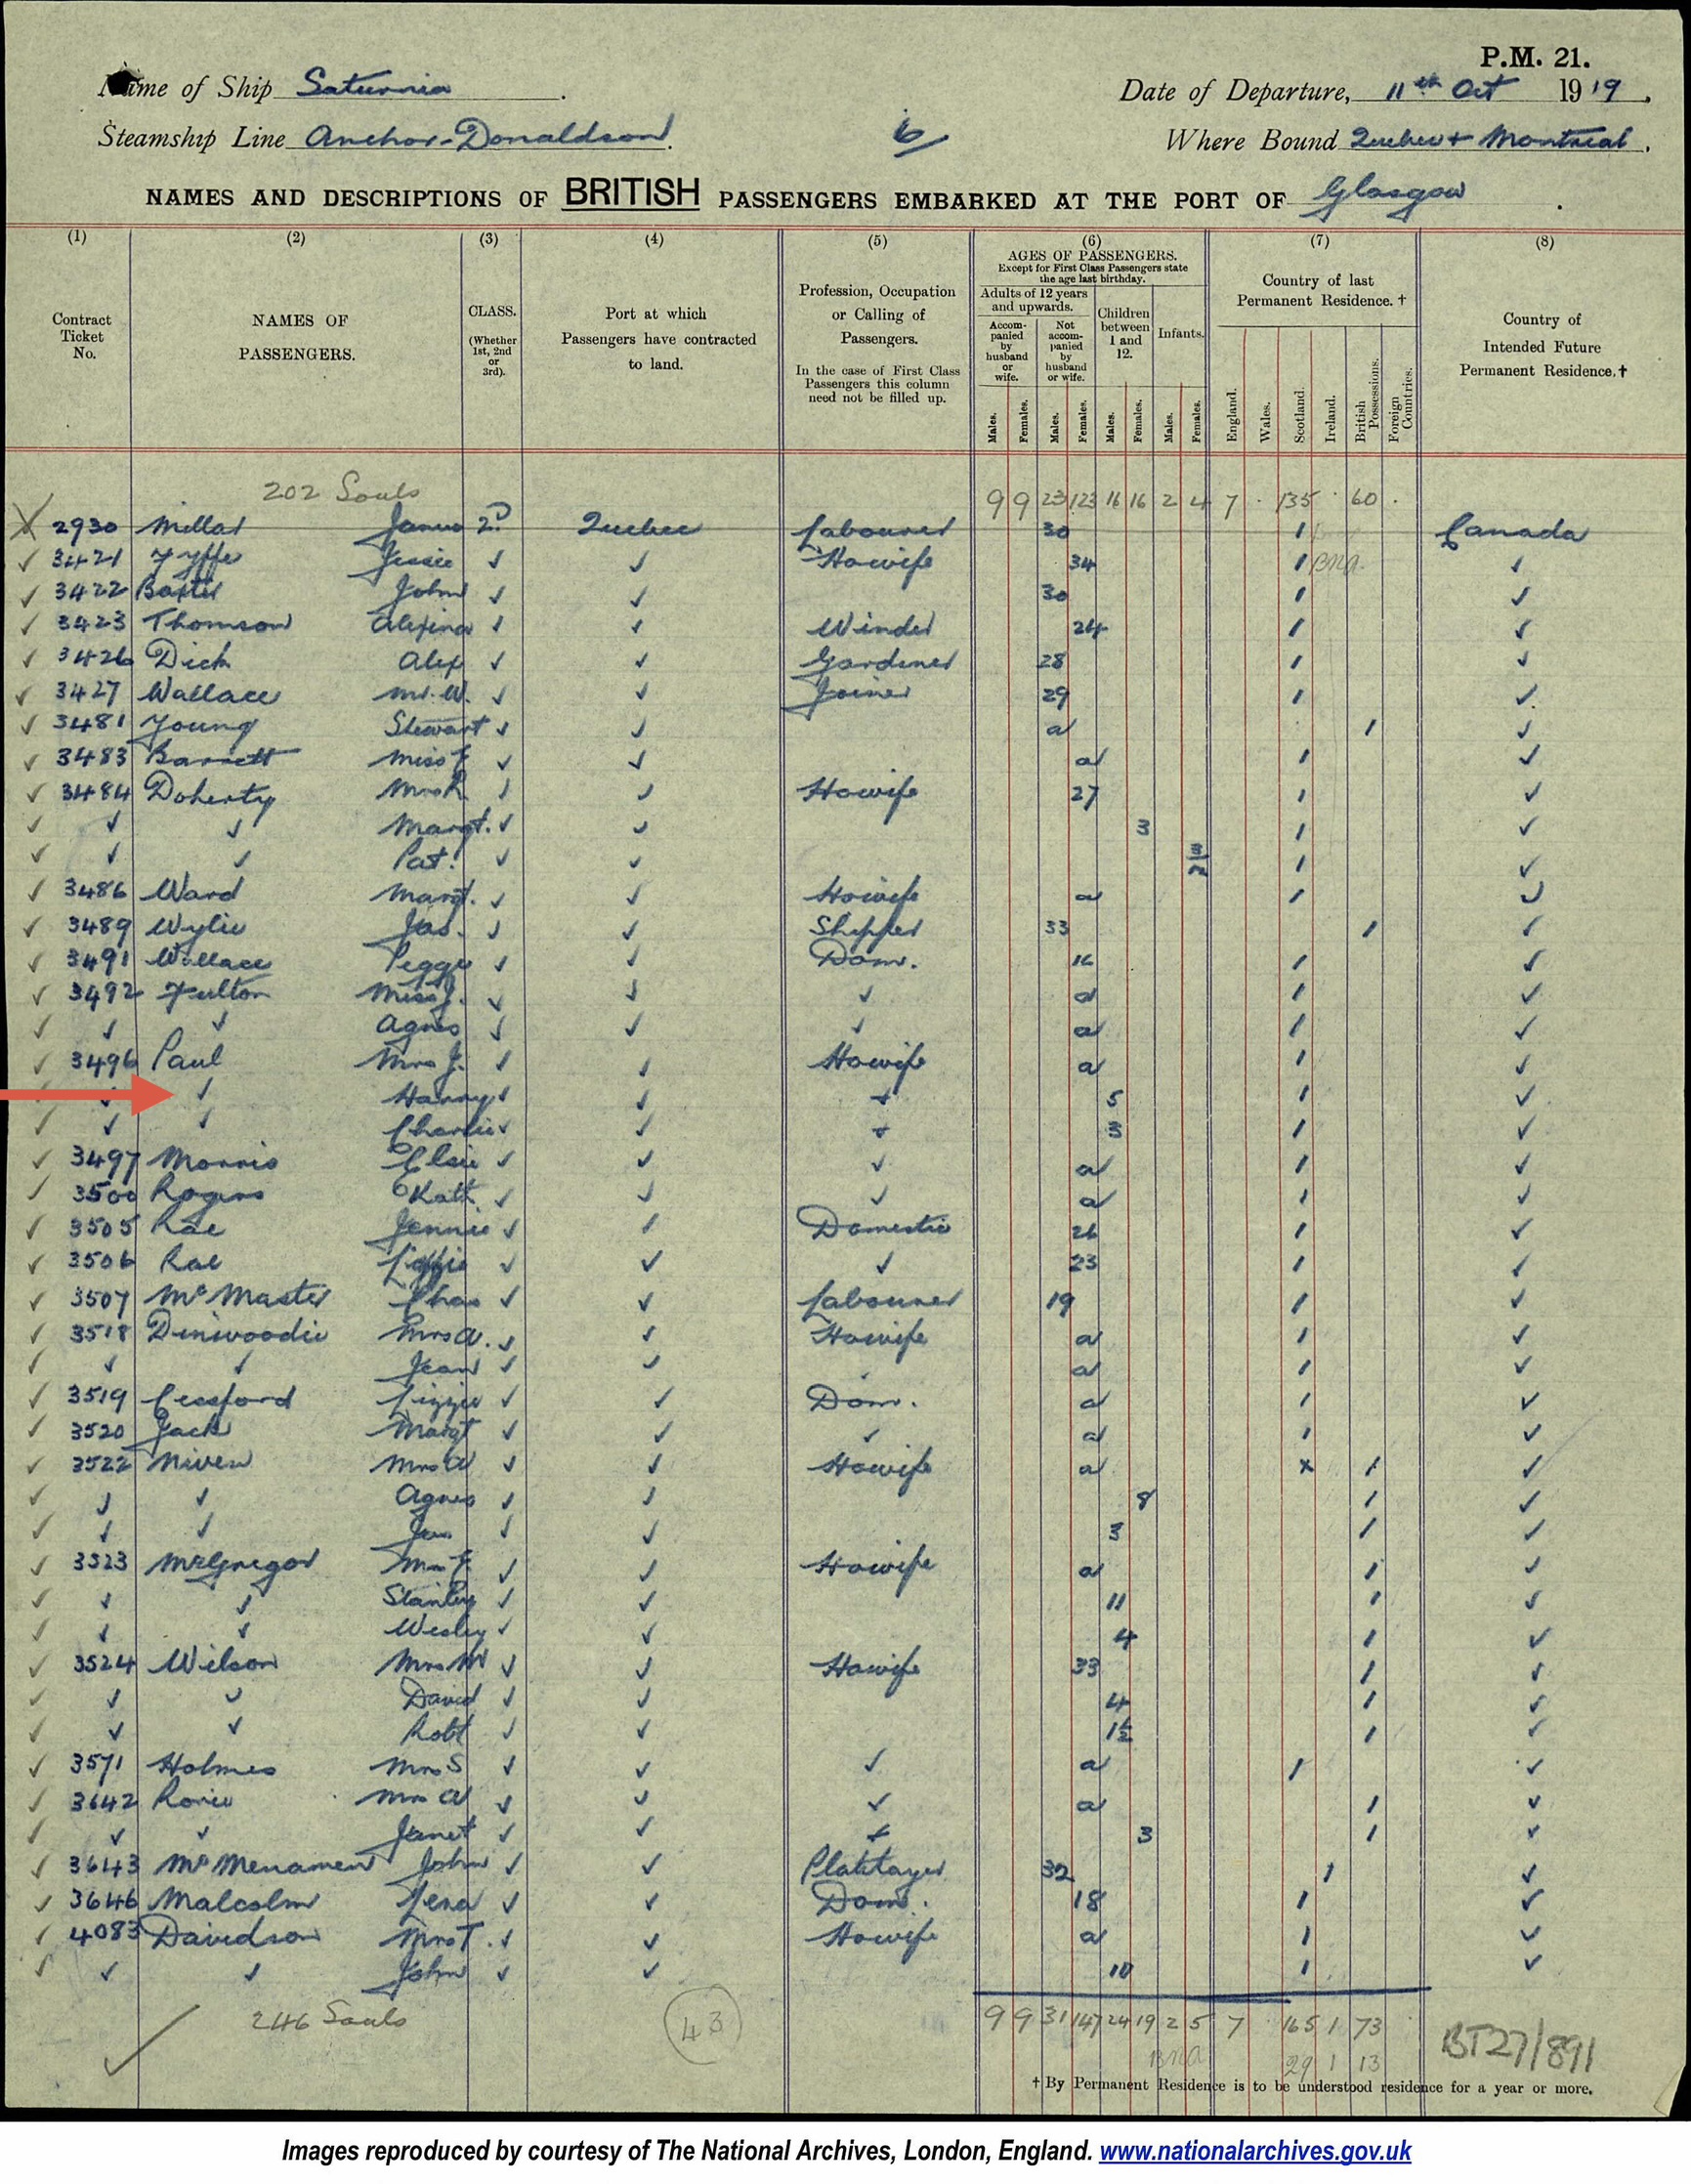 P.M. 21.
Name of Ship Saturnia. Date of Departure, 11th Oct 1919.
Steamship Line Anchor-Donaldson. 6 Where Bound Quebec + Montreal.
NAMES AND DESCRIPTIONS OF BRITISH PASSENGERS EMBARKED AT THE PORT OF Glasgow.
(1) (2) (3) (4) (5) (6) (7) (8)
Contract Ticket No.
NAMES OF PASSENGERS.
CLASS. (Whether 1st, 2nd or 3rd).
Port at which Passengers have contracted to land.
Profession, Occupation or Calling of Passengers.
In the case of First Class Passengers this column need not be filled up.
AGES OF PASSENGERS.
Except for First Class Passengers state the age last birthday.
Adults of 12 years and upwards.
Accompanied by husband or wife.
Not accompanied by husband or wife.
Children between 1 and 12.
Infants.
Males. Females. Males. Females. Males. Females. Males. Females.
Country of last Permanent Residence. †
England. Wales. Scotland. Ireland. British Possessions. Foreign Countries.
Country of Intended Future Permanent Residence. †
202 Souls 9 9 23 123 16 16 2 4 7 · 135 · 60 ·
X 2930 Millar James 2D Quebec Labourer 30 1 Canada
✓ 3421 Fyffe Jessie ✓ ✓ Howife 34 1 BNA ✓
✓ 3422 Baxter John ✓ ✓ 30 1 ✓
✓ 3423 Thomson Alexina ✓ ✓ Winder 24 1 ✓
✓ 3426 Dick Alex ✓ ✓ Gardener 28 1 ✓
✓ 3427 Wallace Mr. W. ✓ ✓ Joiner 29 1 ✓
✓ 3481 Young Stewart ✓ ✓ a 1 ✓
✓ 3483 Barrett Miss ✓ ✓ a 1 ✓
✓ 3484 Doherty Mrs R. ✓ ✓ Howife 27 1 ✓
✓ ✓ ✓ Margt. ✓ ✓ 3 1 ✓
✓ ✓ ✓ Pat. ✓ ✓ 3/12 1 ✓
✓ 3486 Ward Margt. ✓ ✓ Howife a 1 ✓
✓ 3489 Wylie Jas. ✓ ✓ Shipper 33 1 ✓
✓ 3491 Wallace Peggy ✓ ✓ Dom. 16 1 ✓
✓ 3492 Fulton Miss J. ✓ ✓ ✓ a 1 ✓
✓ ✓ ✓ Agnes ✓ ✓ ✓ a 1 ✓
✓ 3496 Paul Mrs J. ✓ ✓ Howife a 1 ✓
✓ ✓ Harry ✓ ✓ + 5 1 ✓
✓ ✓ ✓ Charlie ✓ ✓ + 3 1 ✓
✓ 3497 Morris Elsie ✓ ✓ ✓ a 1 ✓
✓ 3500 Rogers Kath ✓ ✓ ✓ a 1 ✓
✓ 3505 Rae Jennie ✓ ✓ Domestic 26 1 ✓
✓ 3506 Rae Lizzie ✓ ✓ ✓ 23 1 ✓
✓ 3507 McMaster Chas ✓ ✓ Labourer 19 1 ✓
✓ 3518 Dinwoodie Mrs A. ✓ ✓ Howife a 1 ✓
✓ ✓ ✓ Jean ✓ ✓ a 1 ✓
✓ 3519 Cessford Lizzie ✓ ✓ Dom. a 1 ✓
✓ 3520 Jack Margt ✓ ✓ ✓ a 1 ✓
✓ 3522 Niven Mrs A ✓ ✓ Howife a x 1 ✓
✓ ✓ ✓ Agnes ✓ ✓ 8 1 ✓
✓ ✓ ✓ Jas ✓ ✓ 3 1 ✓
✓ 3523 McGregor Mrs ✓ ✓ Howife a 1 ✓
✓ ✓ ✓ Stanley ✓ ✓ 11 1 ✓
✓ ✓ ✓ Wesley ✓ ✓ 4 1 ✓
✓ 3524 Wilson Mrs M ✓ ✓ Howife 33 1 ✓
✓ ✓ ✓ David ✓ ✓ 4 1 ✓
✓ ✓ ✓ Robt ✓ ✓ 1½ 1 ✓
✓ 3571 Holmes Mrs S ✓ ✓ ✓ a 1 ✓
✓ 3642 Rorie Mrs A ✓ ✓ ✓ a 1 ✓
✓ ✓ ✓ Janet ✓ ✓ + 3 1 ✓
✓ 3643 McMenamen John ✓ ✓ Platelayer 32 1 ✓
✓ 3646 Malcolm Lena ✓ ✓ Dom. 18 1 ✓
✓ 4083 Davidson Mrs T. ✓ ✓ Howife a 1 ✓
✓ ✓ ✓ John ✓ ✓ 10 1 ✓
246 Souls 43 9 9 31 147 24 19 2 5 7 165 1 73
BNA 29 1 13
BT27/891
† By Permanent Residence is to be understood residence for a year or more.
Images reproduced by courtesy of The National Archives, London, England. www.nationalarchives.gov.uk